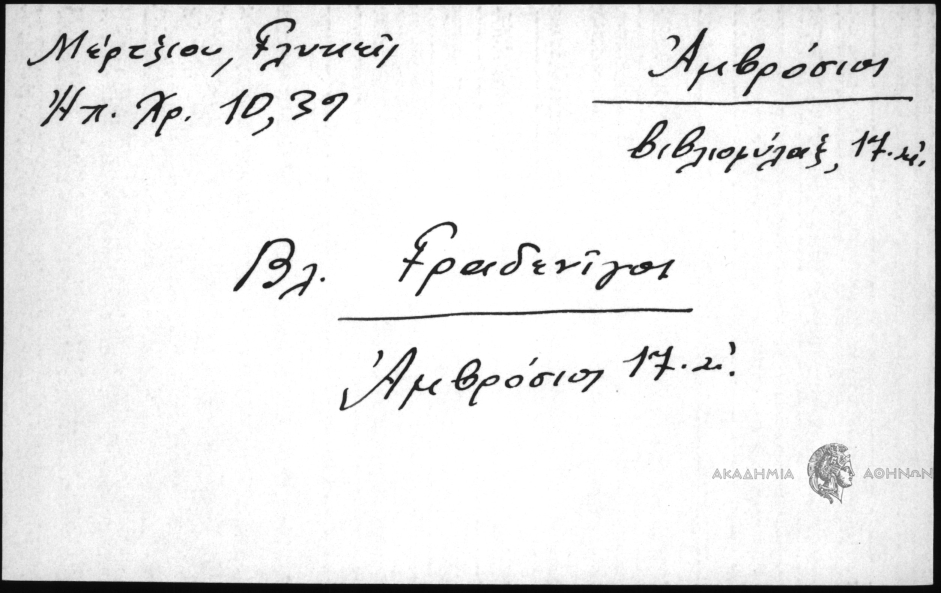 Μέρτζιου, Γλυκεῖς
Ἠπ. Χρ. 10, 39
Ἀμβρόσιος
βιβλιοφύλαξ, 17. αἰ.
Βλ. Γραδενῖγος
Ἀμβρόσιος 17. αἰ.
ΑΚΑΔΗΜΙΑ ΑΘΗΝΩΝ